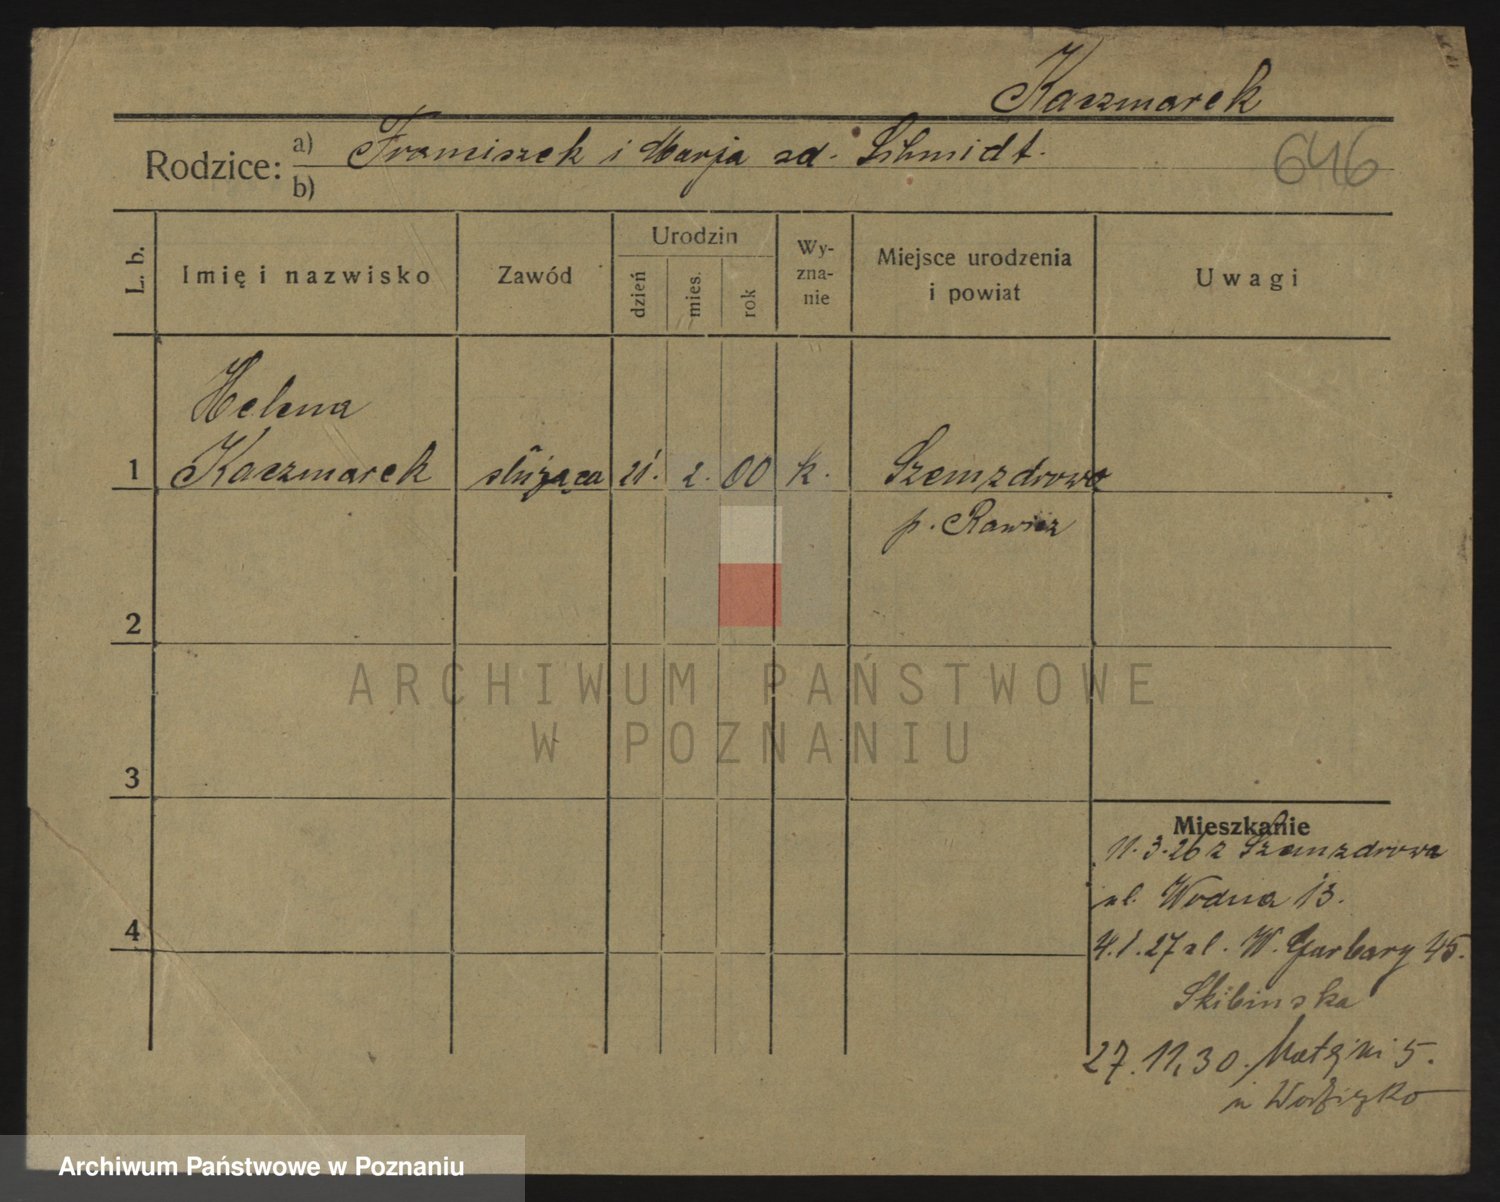 Kaczmarek
Rodzice: a) Franciszek i Marja zd. Schmidt.
b)
646
L. b.
Imię i nazwisko
Zawód
Urodzin
dzień
mies.
rok
Wy-
zna-
nie
Miejsce urodzenia
i powiat
Uwagi
Helena
1 Kaczmarek służąca 21. 2. 00 k. Szemzdrowo
p. Rawicz
2
ARCHIWUM PAŃSTWOWE
W POZNANIU
3
Mieszkanie
11.3.26 z Szemzdrowa
ul. Wodna 13.
4
4.1.27 ul. W. Garbary 45.
Skibinska
27.11.30. 5.
u
Archiwum Państwowe w Poznaniu